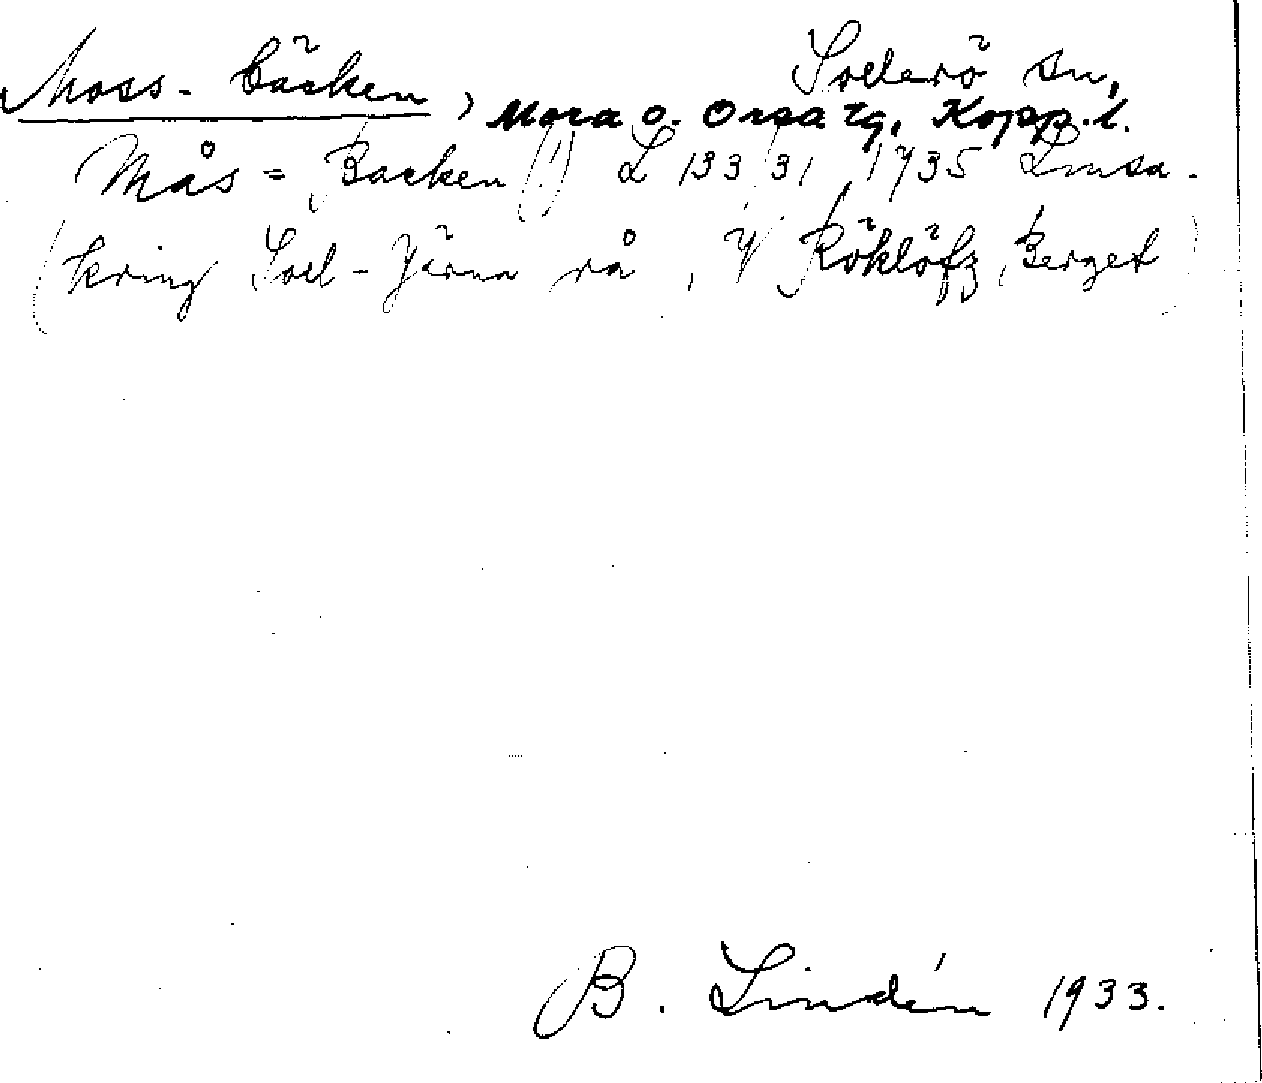 Moss-bäcken, Sollerö sn,
Mora o. Orsa tg, Kopp. l.
Mås=Backen (!) L 133/31 1735 Lmsa.
(kring Soll-Järna rå, V Röklöfz Berget)
B. Lindén 1933.